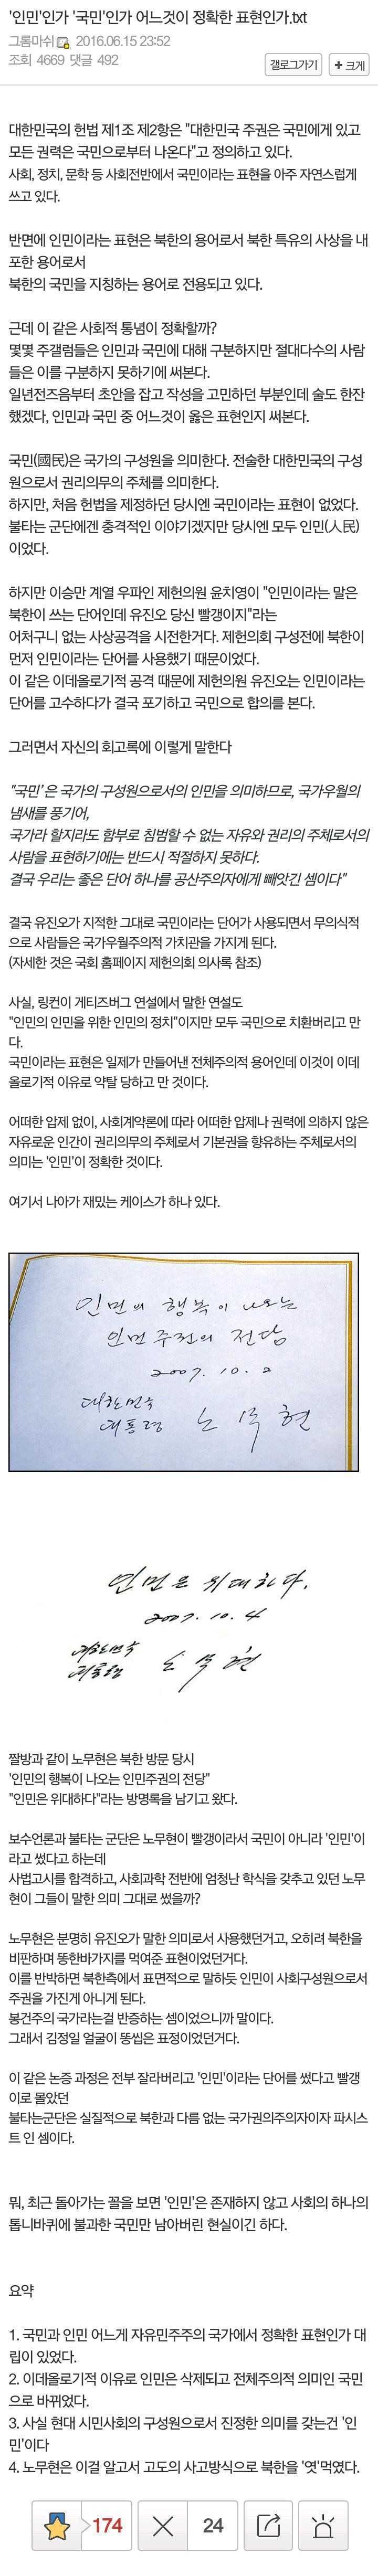 '인민'인가 '국민'인가 어느것이 정확한 표현인가.txt
그롬마쉬 2016.06.15 23:52
조회 4669 댓글 492
갤로그가기
+ 크게
대한민국의 헌법 제1조 제2항은 "대한민국 주권은 국민에게 있고
모든 권력은 국민으로부터 나온다"고 정의하고 있다.
사회, 정치, 문학 등 사회전반에서 국민이라는 표현을 아주 자연스럽게
쓰고 있다.
반면에 인민이라는 표현은 북한의 용어로서 북한 특유의 사상을 내
포한 용어로서
북한의 국민을 지칭하는 용어로 전용되고 있다.
근데 이 같은 사회적 통념이 정확할까?
몇몇 주갤럼들은 인민과 국민에 대해 구분하지만 절대다수의 사람
들은 이를 구분하지 못하기에 써본다.
일년전즈음부터 초안을 잡고 작성을 고민하던 부분인데 술도 한잔
했겠다, 인민과 국민 중 어느것이 옳은 표현인지 써본다.
국민(國民)은 국가의 구성원을 의미한다. 전술한 대한민국의 구성
원으로서 권리의무의 주체를 의미한다.
하지만, 처음 헌법을 제정하던 당시엔 국민이라는 표현이 없었다.
불타는 군단에겐 충격적인 이야기겠지만 당시엔 모두 인민(人民)
이었다.
하지만 이승만 계열 우파인 제헌의원 윤치영이 "인민이라는 말은
북한이 쓰는 단어인데 유진오 당신 빨갱이지"라는
어처구니 없는 사상공격을 시전한거다. 제헌의회 구성전에 북한이
먼저 인민이라는 단어를 사용했기 때문이었다.
이 같은 이데올로기적 공격 때문에 제헌의원 유진오는 인민이라는
단어를 고수하다가 결국 포기하고 국민으로 합의를 본다.
그러면서 자신의 회고록에 이렇게 말한다
"국민'은 국가의 구성원으로서의 인민을 의미하므로, 국가우월의
냄새를 풍기어,
국가라 할지라도 함부로 침범할 수 없는 자유와 권리의 주체로서의
사람을 표현하기에는 반드시 적절하지 못하다.
결국 우리는 좋은 단어 하나를 공산주의자에게 빼앗긴 셈이다"
결국 유진오가 지적한 그대로 국민이라는 단어가 사용되면서 무의식적
으로 사람들은 국가우월주의적 가치관을 가지게 된다.
(자세한 것은 국회 홈페이지 제헌의회 의사록 참조)
사실, 링컨이 게티즈버그 연설에서 말한 연설도
"인민의 인민을 위한 인민의 정치"이지만 모두 국민으로 치환버리고 만
다.
국민이라는 표현은 일제가 만들어낸 전체주의적 용어인데 이것이 이데
올로기적 이유로 약탈 당하고 만 것이다.
어떠한 압제 없이, 사회계약론에 따라 어떠한 압제나 권력에 의하지 않은
자유로운 인간이 권리의무의 주체로서 기본권을 향유하는 주체로서의
의미는 '인민'이 정확한 것이다.
여기서 나아가 재밌는 케이스가 하나 있다.
인민의 행복이 나오는
인민 주권의 전당
2007. 10. 2
대한민국
대통령 노무현
인민은 위대하다.
2007. 10. 4
대한민국
대통령 노무현
짤방과 같이 노무현은 북한 방문 당시
'인민의 행복이 나오는 인민주권의 전당"
"인민은 위대하다"라는 방명록을 남기고 왔다.
보수언론과 불타는 군단은 노무현이 빨갱이라서 국민이 아니라 '인민'이
라고 썼다고 하는데
사법고시를 합격하고, 사회과학 전반에 엄청난 학식을 갖추고 있던 노무
현이 그들이 말한 의미 그대로 썼을까?
노무현은 분명히 유진오가 말한 의미로서 사용했던거고, 오히려 북한을
비판하며 똥한바가지를 먹여준 표현이었던거다.
이를 반박하면 북한측에서 표면적으로 말하듯 인민이 사회구성원으로서
주권을 가진게 아니게 된다.
봉건주의 국가라는걸 반증하는 셈이었으니까 말이다.
그래서 김정일 얼굴이 똥씹은 표정이었던거다.
이 같은 논증 과정은 전부 잘라버리고 '인민'이라는 단어를 썼다고 빨갱
이로 몰았던
불타는군단은 실질적으로 북한과 다름 없는 국가권의주의자이자 파시스
트 인 셈이다.
뭐, 최근 돌아가는 꼴을 보면 '인민'은 존재하지 않고 사회의 하나의
톱니바퀴에 불과한 국민만 남아버린 현실이긴 하다.
요약
1. 국민과 인민 어느게 자유민주주의 국가에서 정확한 표현인가 대
립이 있었다.
2. 이데올로기적 이유로 인민은 삭제되고 전체주의적 의미인 국민
으로 바뀌었다.
3. 사실 현대 시민사회의 구성원으로서 진정한 의미를 갖는건 '인
민'이다
4. 노무현은 이걸 알고서 고도의 사고방식으로 북한을 '엿'먹였다.
174
24